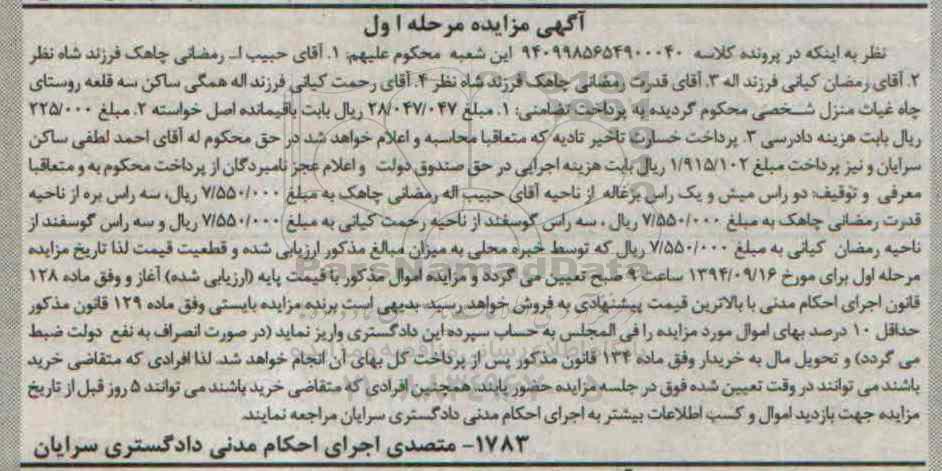 آگهی مزایده مرحله اول
نظر به اینکه در پرونده کلاسه ۹۴۰۹۹۸۵۶۵۴۹۰۰۰۴۰ این شعبه محکوم علیهم: ۱. آقای حبیب اله رمضانی چاهک فرزند شاه نظر
۲. آقای رمضان کیانی فرزند اله ۳. آقای قدرت رمضانی چاهک فرزند شاه نظر ۴. آقای رحمت کیانی فرزند اله همگی ساکن سه قلعه روستای
چاه غیاث منزل شخصی محکوم گردیده به پرداخت تضامنی: ۱. مبلغ ۲۸/۰۴۷/۰۴۷ ریال بابت باقیمانده اصل خواسته ۲. مبلغ ۲۲۵/۰۰۰
ریال بابت هزینه دادرسی ۳. پرداخت خسارت تاخیر تادیه که متعاقبا محاسبه و اعلام خواهد شد، در حق محکوم له آقای احمد لطفی ساکن
سرایان و نیز پرداخت مبلغ ۱/۹۱۵/۱۰۲ ریال بابت هزینه اجرایی در حق صندوق دولت و اعلام عجز نامبردگان از پرداخت محکوم به و متعاقبا
معرفی و توقیف: دو راس میش و یک راس بزغاله از ناحیه آقای حبیب اله رمضانی چاهک به مبلغ ۷/۵۵۰/۰۰۰ ریال، سه راس بره از ناحیه
قدرت رمضانی چاهک به مبلغ ۷/۵۵۰/۰۰۰ ریال ، سه راس گوسفند از ناحیه رحمت کیانی به مبلغ ۷/۵۵۰/۰۰۰ ریال و سه راس گوسفند از
ناحیه رمضان کیانی به مبلغ ۷/۵۵۰/۰۰۰ ریال که توسط خبره محلی به میزان مبالغ مذکور ارزیابی شده و قطعیت قیمت لذا تاریخ مزایده
مرحله اول برای مورخ ۱۳۹۴/۰۹/۱۶ ساعت صبح تعیین می گردد و مزایده اموال مذکور با قیمت پایه (ارزیابی شده) آغاز و وفق ماده ۱۲۸
قانون اجرای احکام مدنی با بالاترین قیمت پیشنهادی به فروش خواهد رسید. بدیهی است برنده مزایده بایستی وفق ماده ۱۲۹ قانون مذکور
حداقل ۱۰ درصد بهای اموال مورد مزایده را فی المجلس به حساب سپرده این دادگستری واریز نماید (در صورت انصراف به نفع دولت ضبط
می گردد) و تحویل مال به خریدار وفق ماده ۱۳۴ قانون مذکور پس از پرداخت کل بهای آن انجام خواهد شد. لذا افرادی که متقاضی خرید
باشند می توانند در وقت تعیین شده فوق در جلسه مزایده حضور یابند. همچنین افرادی که متقاضی خرید باشند می توانند ۵ روز قبل از تاریخ
مزایده جهت بازدید اموال و کسب اطلاعات بیشتر به اجرای احکام مدنی دادگستری سرایان مراجعه نمایند.
۱۷۸۳- متصدی اجرای احکام مدنی دادگستری سرایان
ParsNamadData